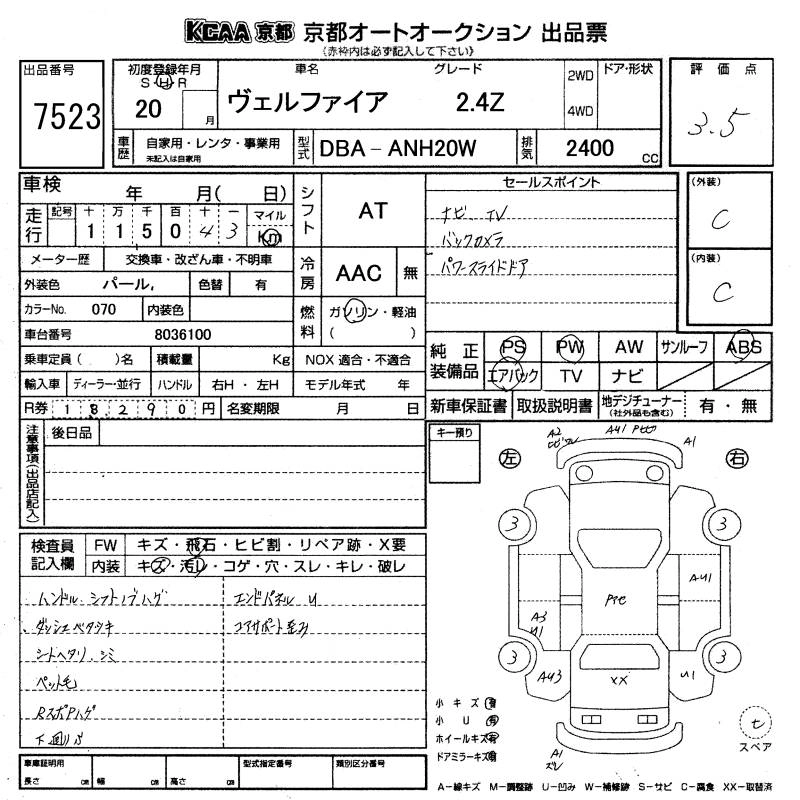 KCAA 京都 京都オートオークション 出品票
(赤枠内は必ず記入して下さい)
出品番号
7523
初度登録年月
S H R
20
月
車名
ヴェルファイア
グレード
2.4Z
2WD
4WD
ドア・形状
評価点
3.5
車歴
自家用・レンタ・事業用
未記入は自家用
型式
DBA-ANH20W
排気
2400
CC
車検
年 月( 日)
走行
記号 十 万 千 百 十 一 マイル
1 1 5 0 4 3 Km
メーター歴 交換車・改ざん車・不明車
外装色 パール, 色替 有
カラーNo. 070 内装色
車台番号 8036100
乗車定員( )名 積載量 Kg
輸入車 ディーラー・並行 ハンドル 右H・左H
R券 1 8 2 9 0 円 名変期限 月 日
シフト
AT
冷房
AAC 無
燃料
ガソリン・軽油
( )
NOX 適合・不適合
モデル年式 年
セールスポイント
ナビ TV
バックカメラ
パワースライドドア
(外装)
C
(内装)
C
純正装備品
PS PW AW サンルーフ ABS
エアバック TV ナビ
新車保証書 取扱説明書 地デジチューナー
(社外品も含む)
有・無
注意事項(出品店記入)
後日品
検査員記入欄
FW キズ・飛石・ヒビ割・リペア跡・X要
内装 キズ・汚レ・コゲ・穴・スレ・キレ・破レ
ハンドル.シフトノブハゲ
エンドパネル U
コアサポート歪み
シートヘタリ.シミ
ペット毛
下廻りサビ
車庫証明用
長さ cm 幅 cm 高さ cm
型式指定番号
類別区分番号
キー預り
左
右
A2
AU1
A1
3
3
3
3
AU1
A3
U1
AU3
U1
XX
A1
小キズ 有
小U 有
ホイールキズ 有
ドアミラーキズ 有
スペア
A-線キズ M-調整跡 U-凹み W-補修跡 S-サビ C-腐食 XX-取替済